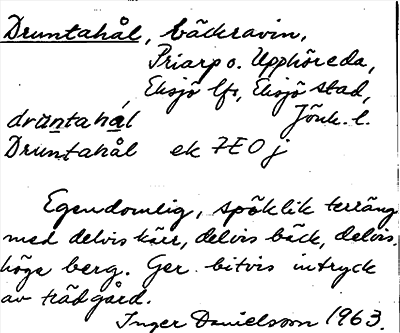 Druntahål, bäckravin,
Priarp o. Upphöreda,
Eksjö lfs, Eksjö stad,
Jönk. l.
drun̲tahá̲l
Druntahål ek 7E0j
Egendomlig, spöklik terräng
med delvis kärr, delvis bäck, delvis
höga berg. Ger bitvis intryck
av trädgård.
Inger Danielsson 1963.